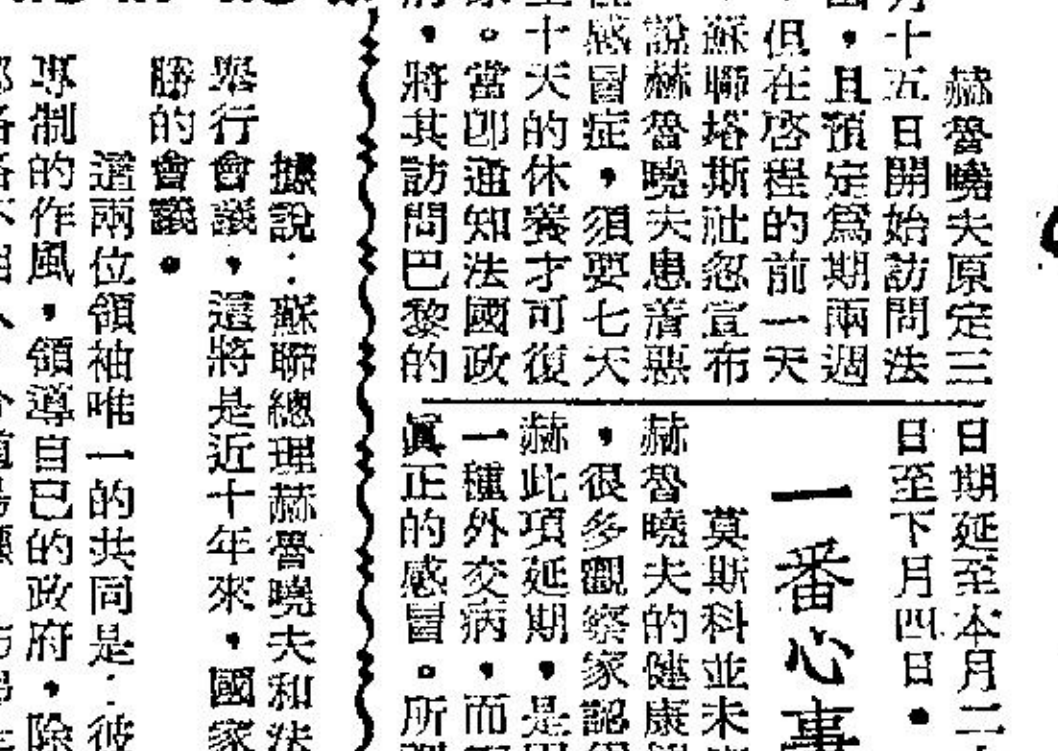 赫魯曉夫原定三
月十五日開始訪問法
，且預定爲期兩週
，但在啓程的前一天
蘇聯塔斯社忽宣布
說赫魯曉夫患着惡
感冒症，須要七天
十天的休養才可復
。當卽通知法國政
，將其訪問巴黎的
日期延至本月二
日至下月四日。
一番心事
莫斯科並未
赫魯曉夫的健康
，很多觀察家認
赫此項延期，是
一種外交病，而
眞正的感冒。所
據說：蘇聯總理赫魯曉夫和法
舉行會議，還將是近十年來，國家
勝的會議。
這兩位領袖唯一的共同是：彼
專制的作風，領導自己的政府，除